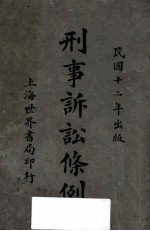 民國十二年出版
刑事訴訟條例
上海世界書局印行